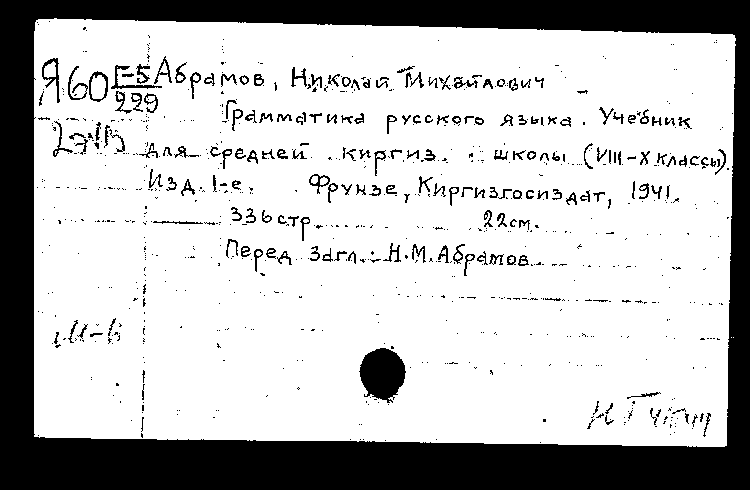 Я60 Г-5 Абрамов, Николай Михайлович
229
Грамматика русского языка. Учебник
2 экз
для средней киргиз. школы (VIII-X классы)
Изд. 1-е. Фрунзе, Киргизгосиздат, 1941.
336 стр. 22 см.
Перед загл.: Н.М. Абрамов